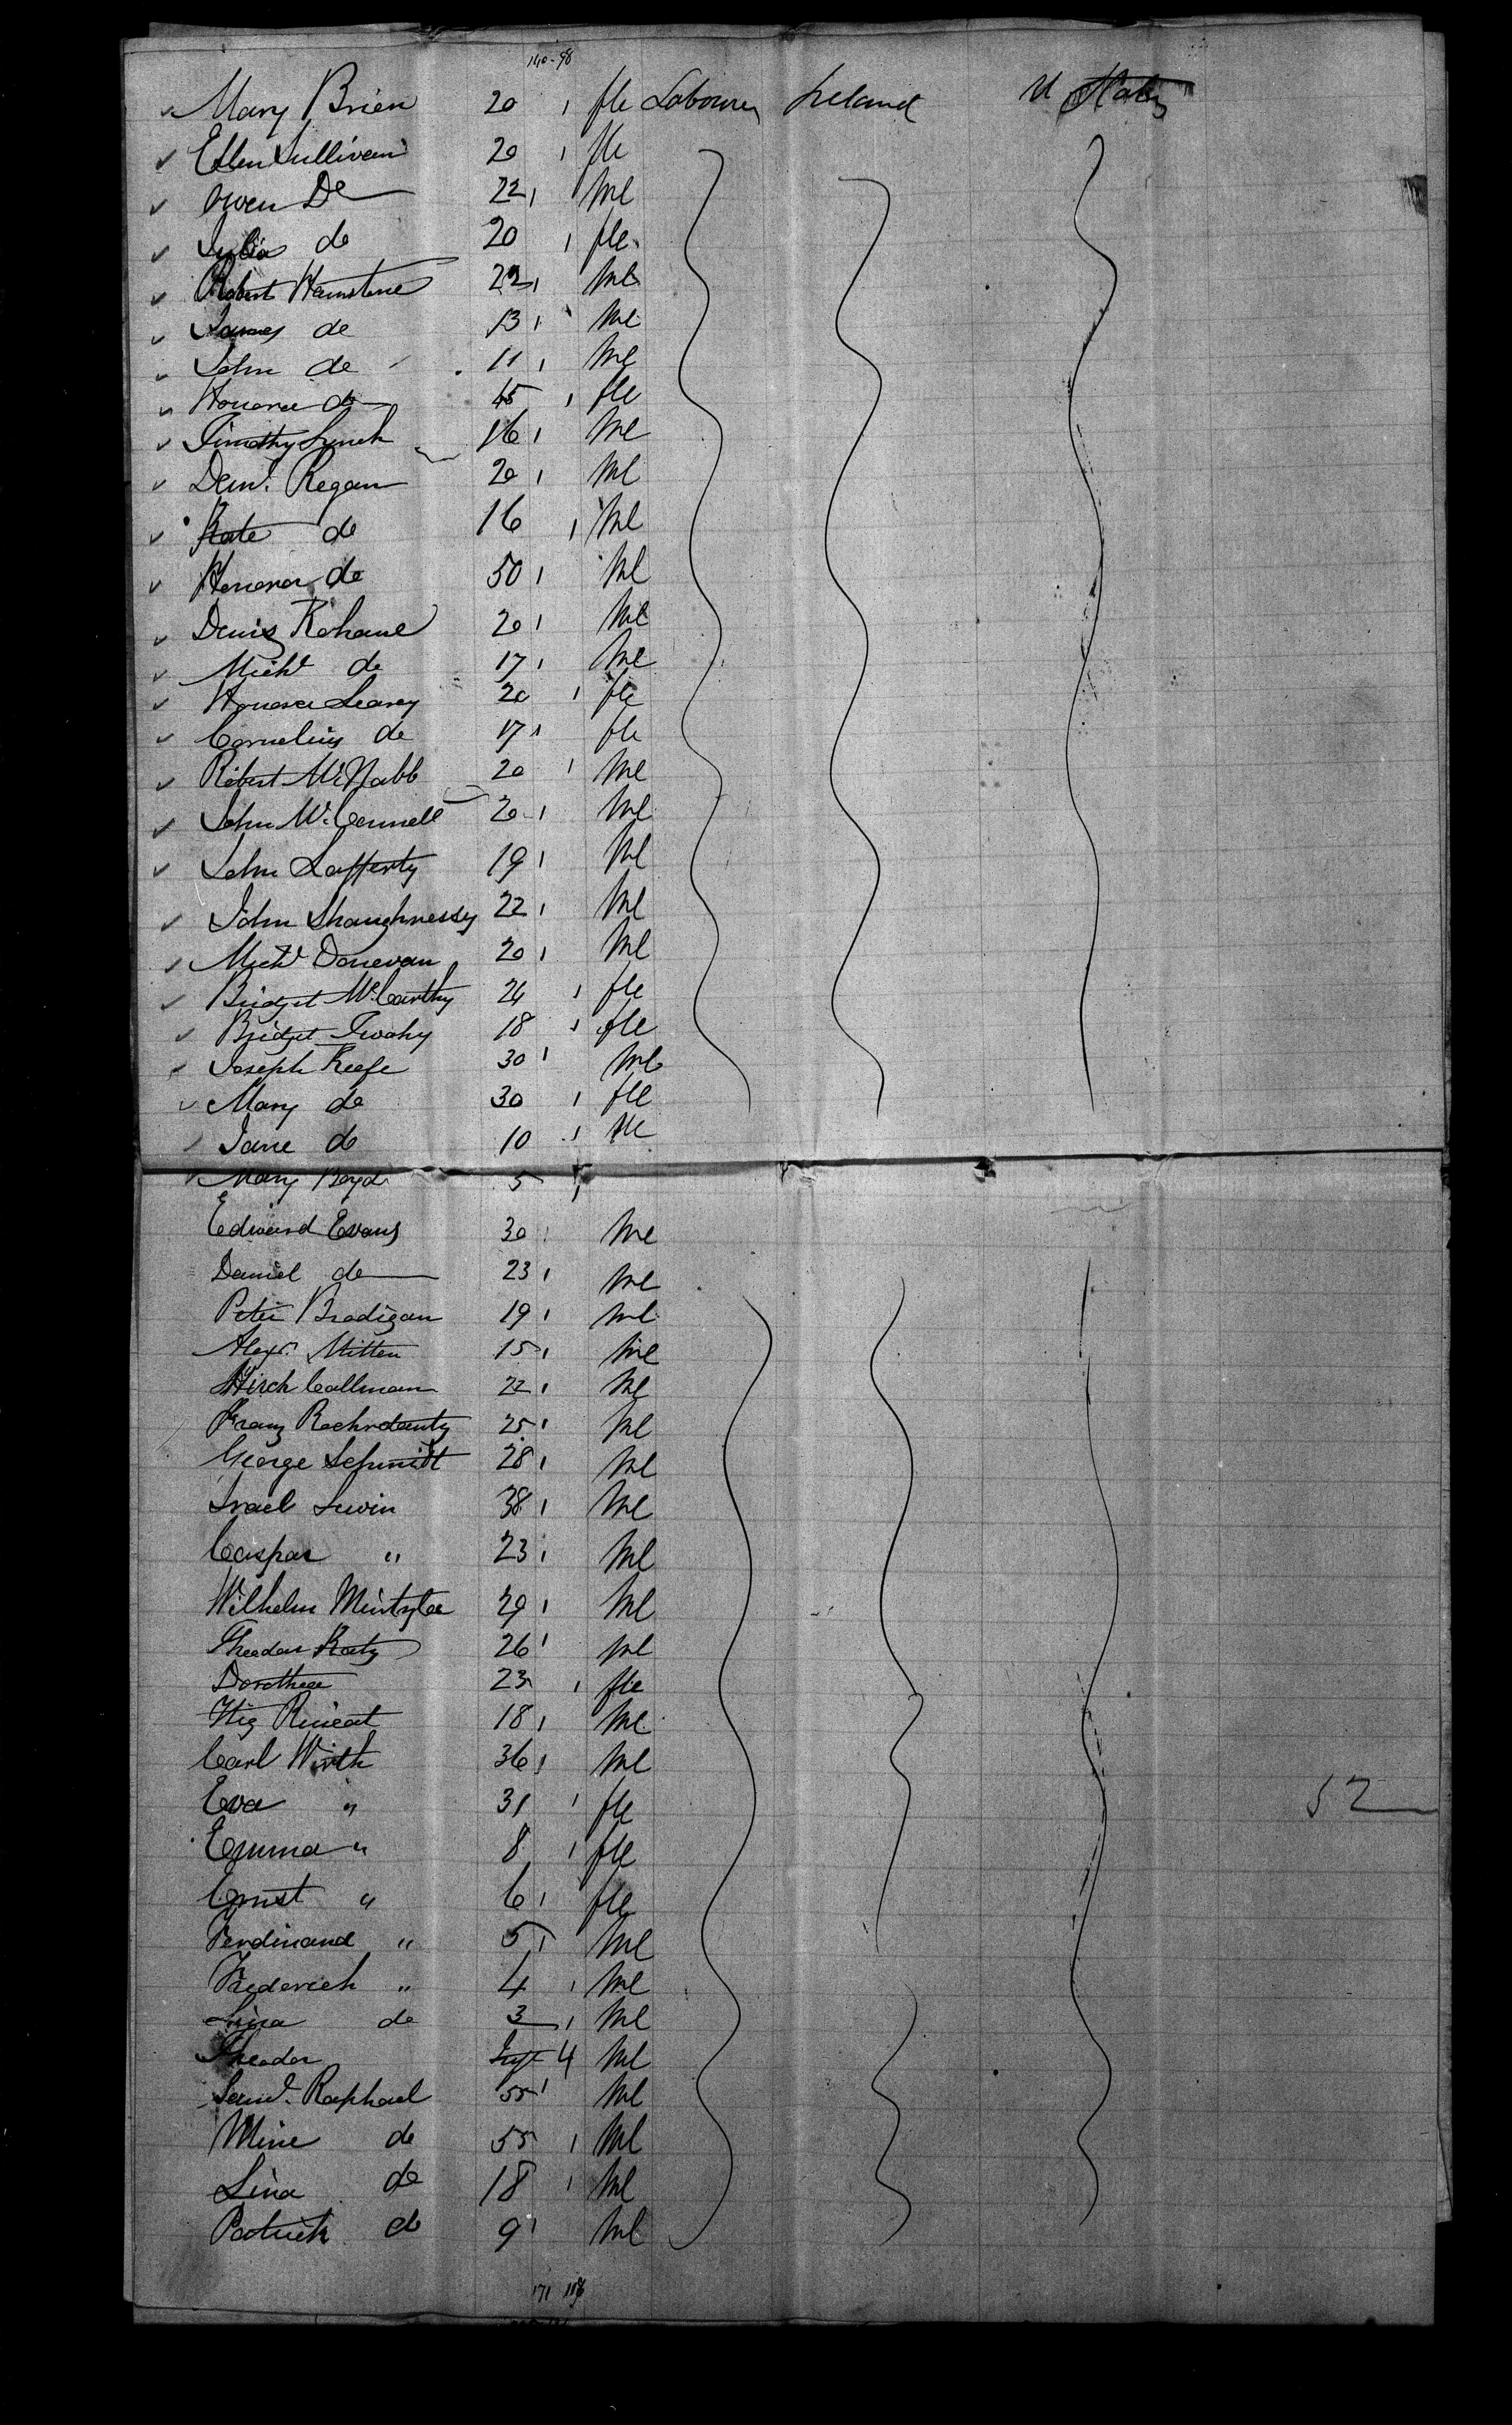 140-98
Mary Brien 20 1 fle Labourer Ireland U States
Ellen Sullivan 20 1 fle
Owen Do 22 1 Ml
Julia do 20 1 fle
Robert 22 1 Ml
James do 13 1 Ml
John do 11 1 Ml
Honora do 45 1 fle
Timothy Lynch 16 1 Ml
Danl. Regan 20 1 Ml
Kate do 16 1 Ml
Honora do 50 1 Ml
Denis Kohane 20 1 Ml
Michl do 17 1 Ml
Honora Leary 20 1 fle
Cornelius do 17 1 fle
Robert McNabb 20 1 Ml
John McConnell 20 1 Ml
John Lafferty 19 1 Ml
John Shaughnessy 22 1 Ml
Michl Donevan 20 1 Ml
Bridget McCarthy 24 1 fle
Bridget Twohy 18 1 fle
Joseph Keefe 30 1 Ml
Mary do 30 1 fle
Jane do 10 1 fle
Mary Boyd 5 1
Edward Evans 30 1 Ml
Daniel do 23 1 Ml
Peter Bradigan 19 1 Ml
Alexr. Mitten 15 1 Ml
Hirch Callman 22 1 Ml
Franz 25 1 Ml
George Schmidt 28 1 Ml
Israel Lewin 38 1 Ml
Caspar " 23 1 Ml
Wilhelm 29 1 Ml
Theodor Katz 26 1 Ml
Dorothea 23 1 fle
18 1 Ml
Carl Wirth 36 1 Ml
Eva " 31 1 fle
52
Emma " 8 1 fle
Ernst " 6 1 fle
Ferdinand " 5 1 Ml
Frederich " 4 1 Ml
Lina do 3 1 Ml
Theodor Inft 4 Ml
Saml. Raphael 55 1 Ml
Mine do 55 1 Ml
Lina do 18 1 Ml
Patrick do 9 1 Ml
171 118